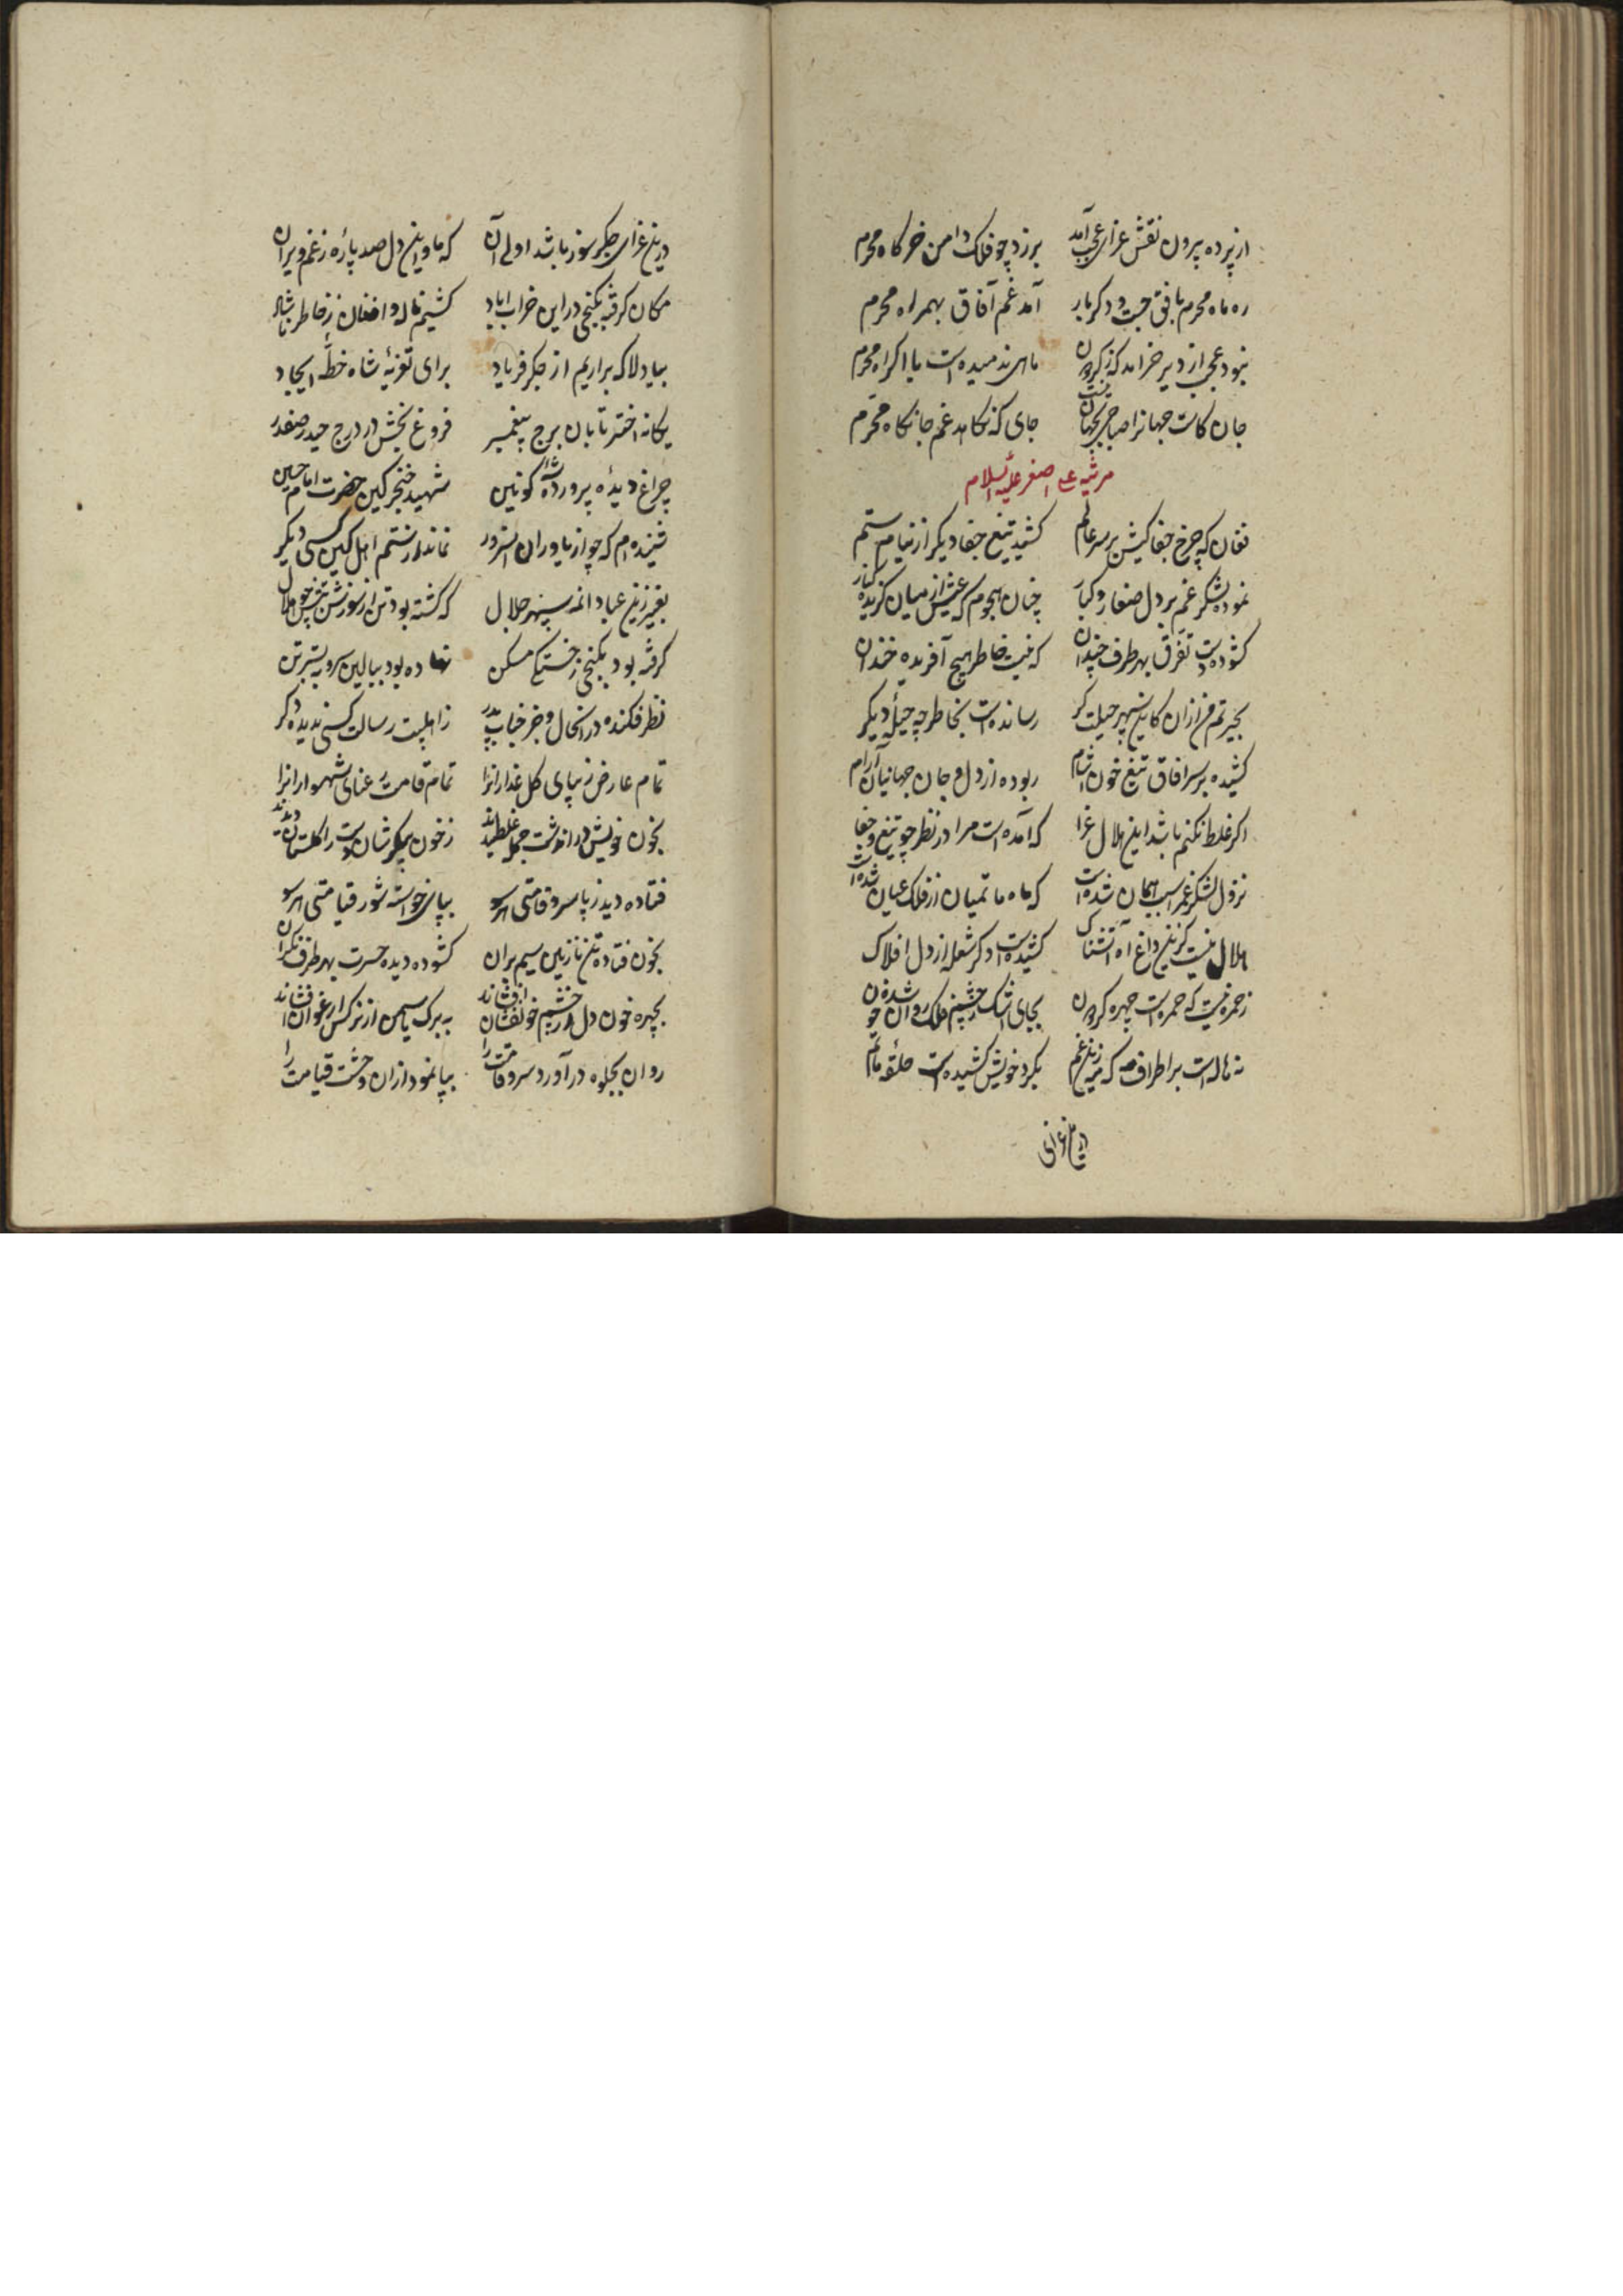 از پرده برون نقش عزای عجب آمد برزد چو فلک دامن خرکاه محرم
ره ماه محرم بافق جست دکر بار آمد غم آفاق بهمراه محرم
نبود عجب از دیر خرامد که ز کردون ماهی ندمیده است باکراه محرم
جان کاست جهانرا صباحی بجهان نیست جای که نکاهد غم جانکاه محرم
مرثیه علی اصغر علیه السلام
فغان که چرخ جفا کیش بر سر عالم کشید تیغ جفا دیکر از نیام ستم
نموده لشکر غم بر دل صغار و کبار چنان هجوم که عیش از میان کزیده کنار
کشوده دست تفرق بهر طرف چندان که نیست خاطر هیچ آفریده خندان
بحیرتم من ازان کاین سپهر حیلت کر رسانده است بخاطر چه حیلهٔ دیکر
کشیده بر سر افاق تیغ خون اشام ربوده از دل و جان جهانیان آرام
اکر غلط نکنم باشد این هلال عزا که آمده است مرا در نظر چو تیغ جفا
نزول لشکر غم را سبب همان شده است که ماه ماتمیان از فلک عیان شده است
هلال نیست کزین داغ آه آتشناک کشیده است دکر شعله از دل افلاک
ز حمره نیست که حمراست چهره کردون بجای اشک ز چشم فلک روان شده خون
نه هاله است بر اطراف مه که نیز ز غم بکرد خویش کشیده است حلقه ماتم
درین عزای
درین عزای جکر سوز باشد اولی آن که ما و این دل صد پاره ز غم ویران
مکان کرفته بکنجی در این خراب اباد کشیم ناله و افغان ز خاطر ناشاد
بیا دلا که براریم از جکر فریاد برای تعزیهٔ شاه خطهٔ ایجاد
یکانه اختر تابان برج پیغمبر فروغ بخش در درج حیدر صفدر
چراغ دیدهٔ پروردهٔ شه کونین شهید خنجر کین حضرت امام حسین
شنیده‌ام که چو از یاوران انسرور نماند از ستم اهل کین کسی دیکر
بغیر زین عباد انمه سپهر جلال که کشته بود تن از سوزش تبش چو هلال
کرفته بود بکنجی ز خستکی مسکن نهاده بود ببالین سر و به بستر تن
نظر فکنده در انحال و جز جناب پدر ز اهلبیت رسالت کسی ندیده دکر
تمام عارض زیبای کل عذارانرا تمام قامت رعنای شهسوارانرا
بخون خویش در اندشت جمله غلطیدند ز خون پیکرشان دشت را کلستان دیدند
فتاده دید ز پا سرو قامتی هر سو بپای خواسته شور قیامتی هر سو
بخون فتاده تن نازنین سیم بران کشوده دیده حسرت بهر طرف نکران
بچهره خون دل از چشم خونفشان افشاند به برک یاسمن از نرکس ارغوان افشاند
روان بجلوه در آورد سرو قامت را بپا نمود ازان دشت قیامت را